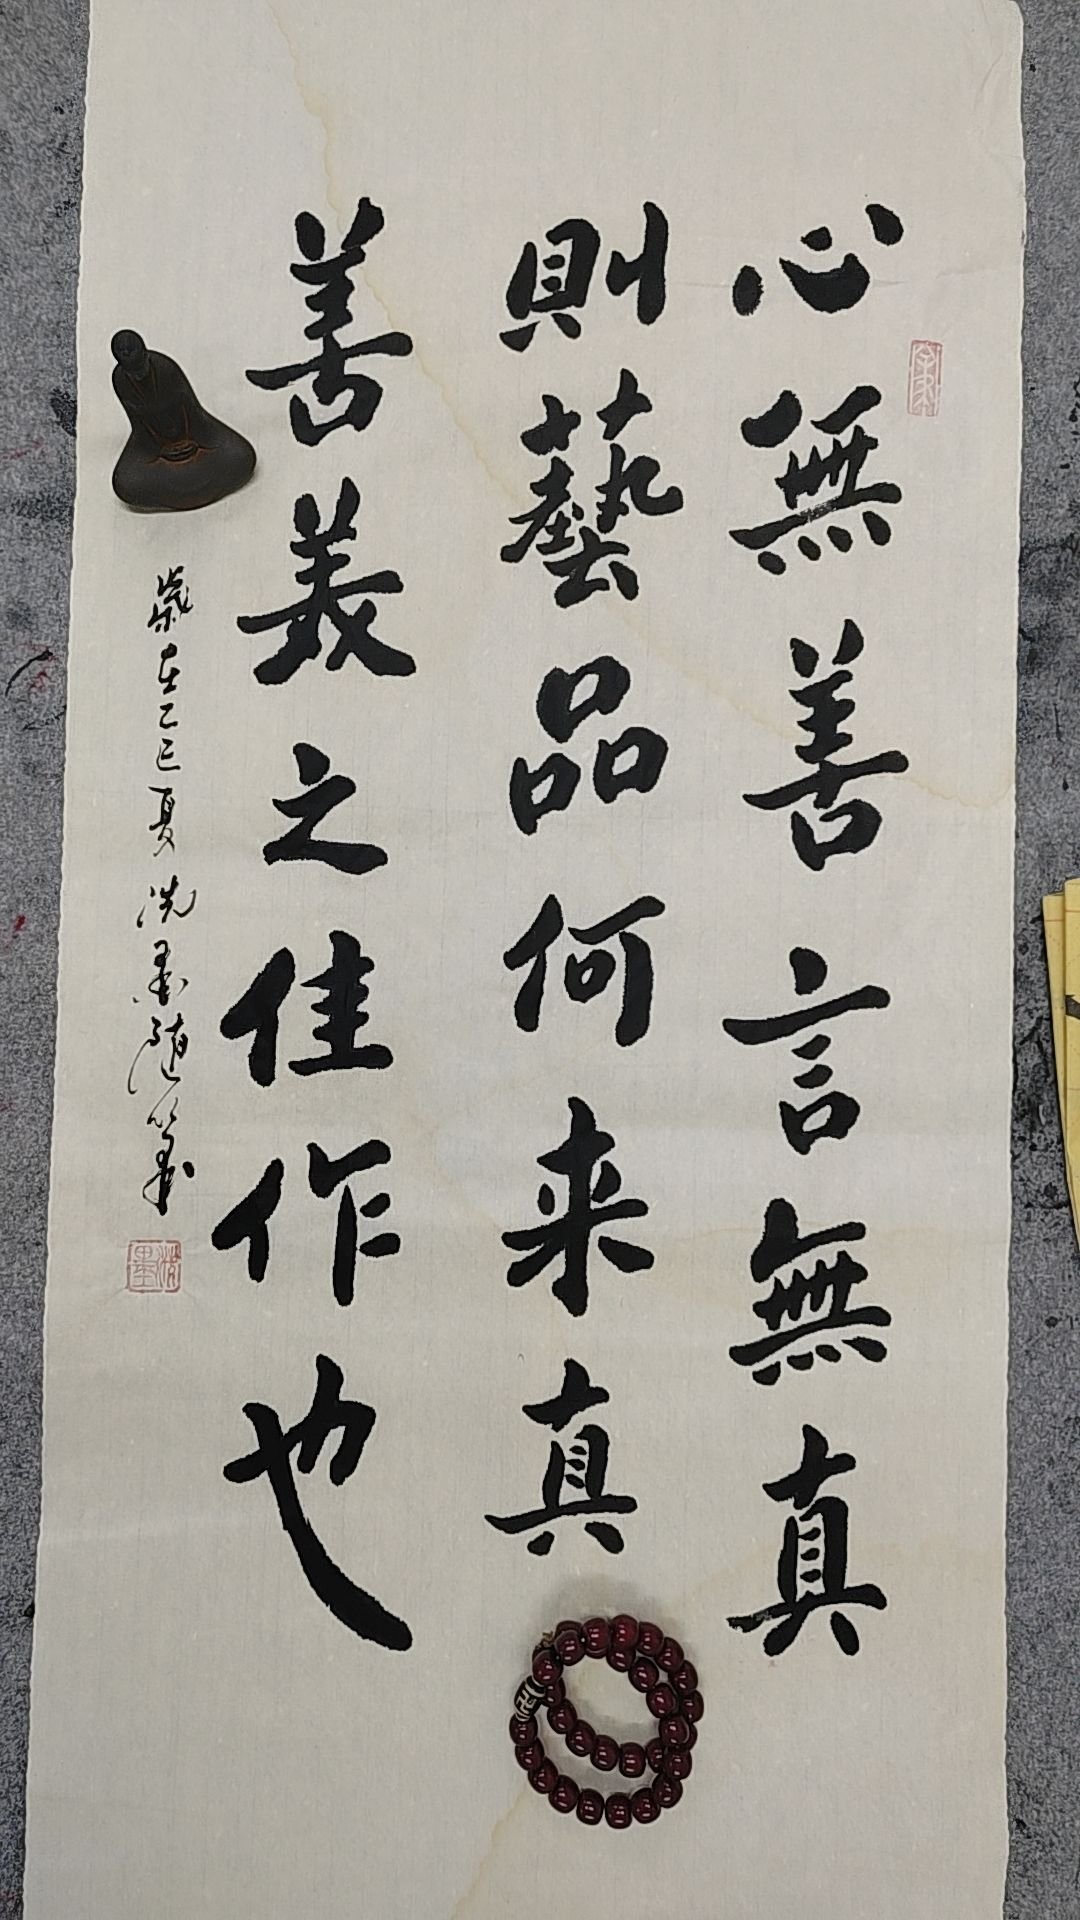 心無善言無真
則藝品何来真
善義之佳作也
歲在乙巳夏洗墨隨筆